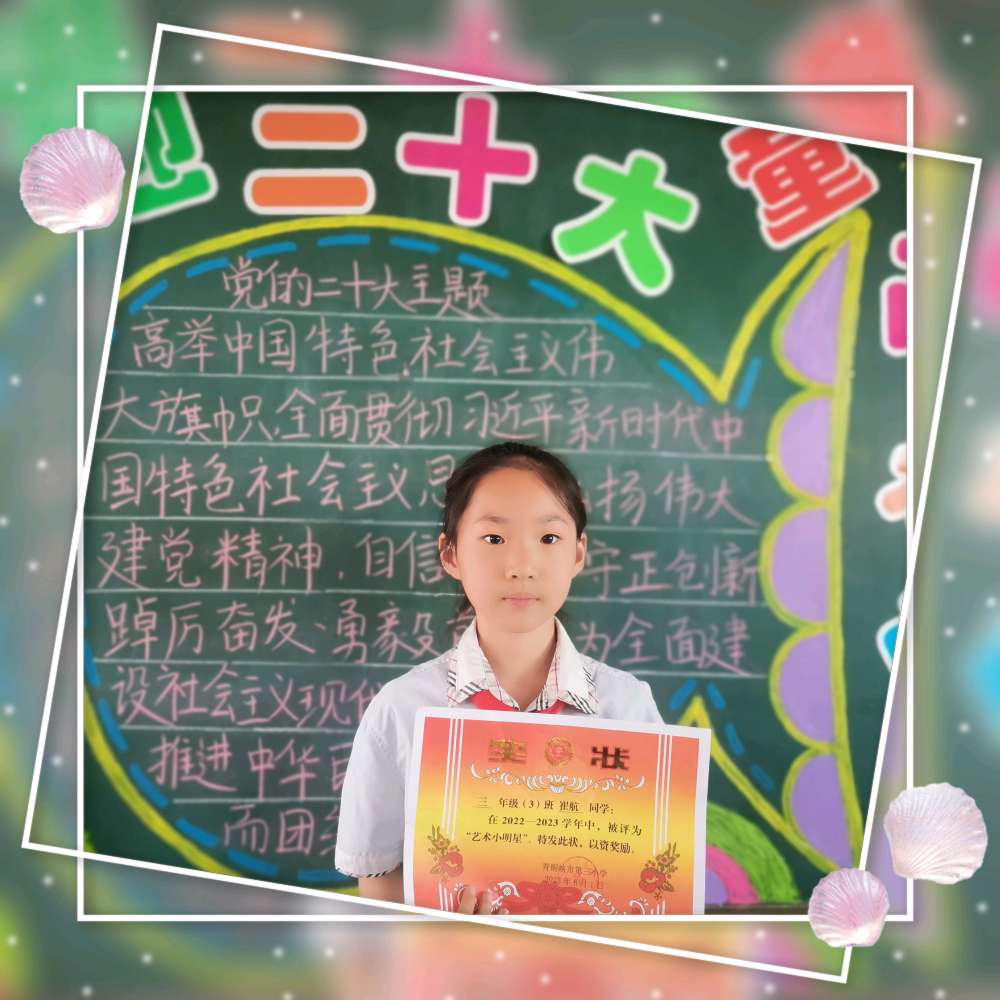 迎二十大 童
党的二十大主题
高举中国特色社会主义伟
大旗帜,全面贯彻习近平新时代中
国特色社会主义思 扬伟大
建党精神,自信 守正创新
踔厉奋发、勇毅 为全面建
设社会主义现代
推进中华
而团结
奖 状
三 年级(3)班 崔航 同学:
在2022—2023学年中,被评为
“艺术小明星”.特发此状,以资奖励.
青铜峡市第三小学